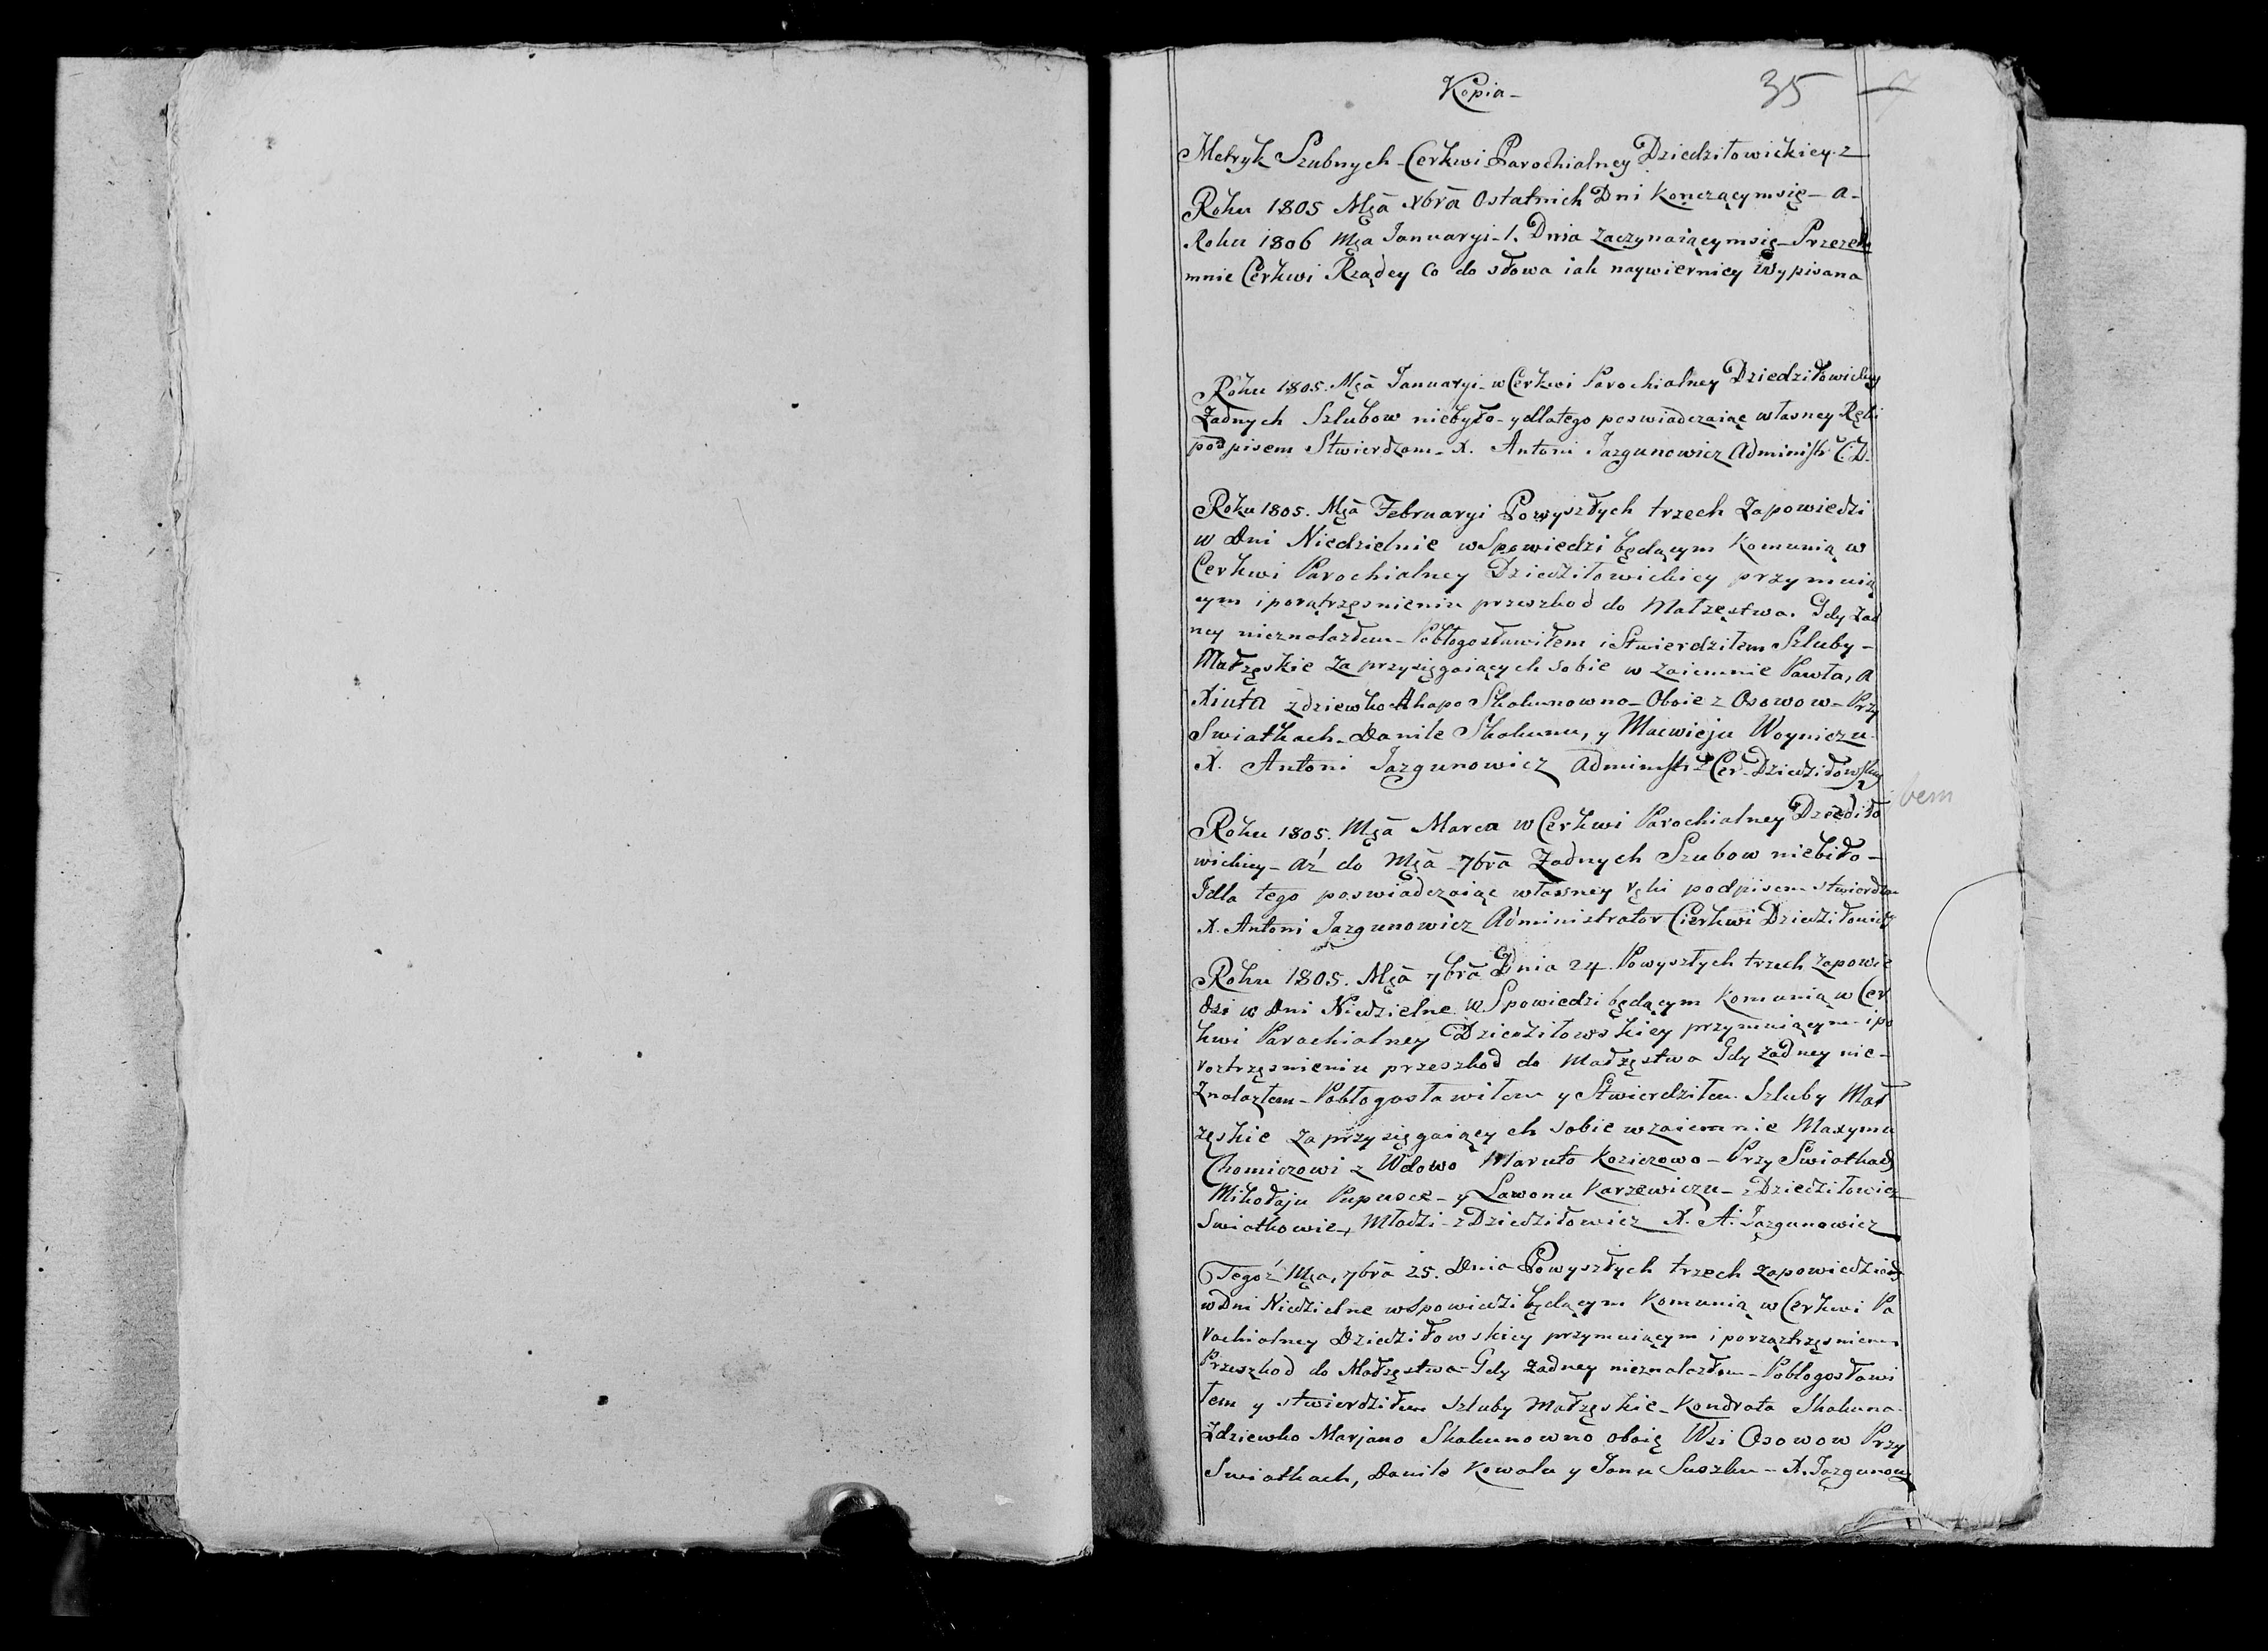 Kopia -
35
Metryk Szubnych - Cerkwi Parochialney Dziedziłowickiey z
Roku 1805 Mcą Xbrą Ostatnich Dni konczącym się - a -
Roku 1806 Mca Januaryi - 1. Dnia zaczynaiącym się - Przeze
mnie Cerkwi Rządcy co do słowa iak naywierniey Wypisana
Roku 1805. Mcą Januaryi - w Cerkwi Parochialney Dziedziłowickiey
Żadnych Szlubow niebyło - y dlatego poswiadczaiąc własney Ręki
podpisem Stwierdzam - X. Antoni Jazgunowicz Administr C. D.
Roku 1805. Mcą Februaryi Powyszłych trzech Zapowiedzi
w Dni Niedzielnie w Spowiedzi będącym Komunią w
Cerkwi Parochialney Dziedziłowickiey przymuią
cym i porątrzęsnieniu przeszkod do Małzęstwa. Gdy żad
ney nieznalazłem - Pobłogosławiłem i Stwierdziłem Szluby -
Małzęskie zaprzysięgaiących sobie w zaiemnie Pawła, A
Xiuta z dziewko Ahapo Skakunowno - Oboie z Osowow - Przy
Swiatkach - Danile Skakunu, y Macwieju Woyniczu
X. Antoni Jazgunowicz Administr Cer - Dziedziłowskiey
bem
Roku 1805. Mcą Marca w Cerkwi Parochialney Dziedziło
wickiey - aź do Mcą - 7brą Żadnych Szubow niebiło -
I dla tego poswiadczaiąc własney ręki podpisem stwierdzam
X. Antoni Jazgunowicz Administrator Cierkwi Dziedziłowick
Roku 1805. Mcą 7brą Dnia 24 Powyszłych trzech Zapowie
dzi w Dni Niedzielne w Spowiedzi będącym Komunią w Cer
kwi Parochialney Dziedziłowskiey przymuiącym i po
roztrzęsnieniu przeszkod do Małzęstwa Gdy żadney nie -
Znalazłem - Pobłogosławiłem y Stwierdziłem Szluby Mał
zęskie zaprzysięgaiących sobie wzaiemnie Maxymu
Chomiczowi z Wdowo Maruto Koziczowo - Przy Swiatkach
Mikołaju Pupusce - y Lawonu Karzewiczu - z Dziedziłowicz
Swiatkowie, Młodzi - z Dziedziłowicz X. A. Jazgunowicz
Tegoź Mca, 7brą 25. Dnia Powyszłych trzech zapowiedziach
w Dni Niedzielne w Spowiedzi będącym Komunią w Cerkwi Pa
rochialney Dziedziłowskiey przymuiącym i porząztrzęsnieniu
Przeszkod do Małzęstwa - Gdy żadney nieznalazłem - Pobłogosławi
łem y stwierdziłem szluby Małzęskie - Kondrata Skakuna
Zdziewko Marjano Skakunowno oboię Wsi Osowow Przy
Swiatkach, Danile Kowalu y Janu Suszku - X. Jazgunowicz